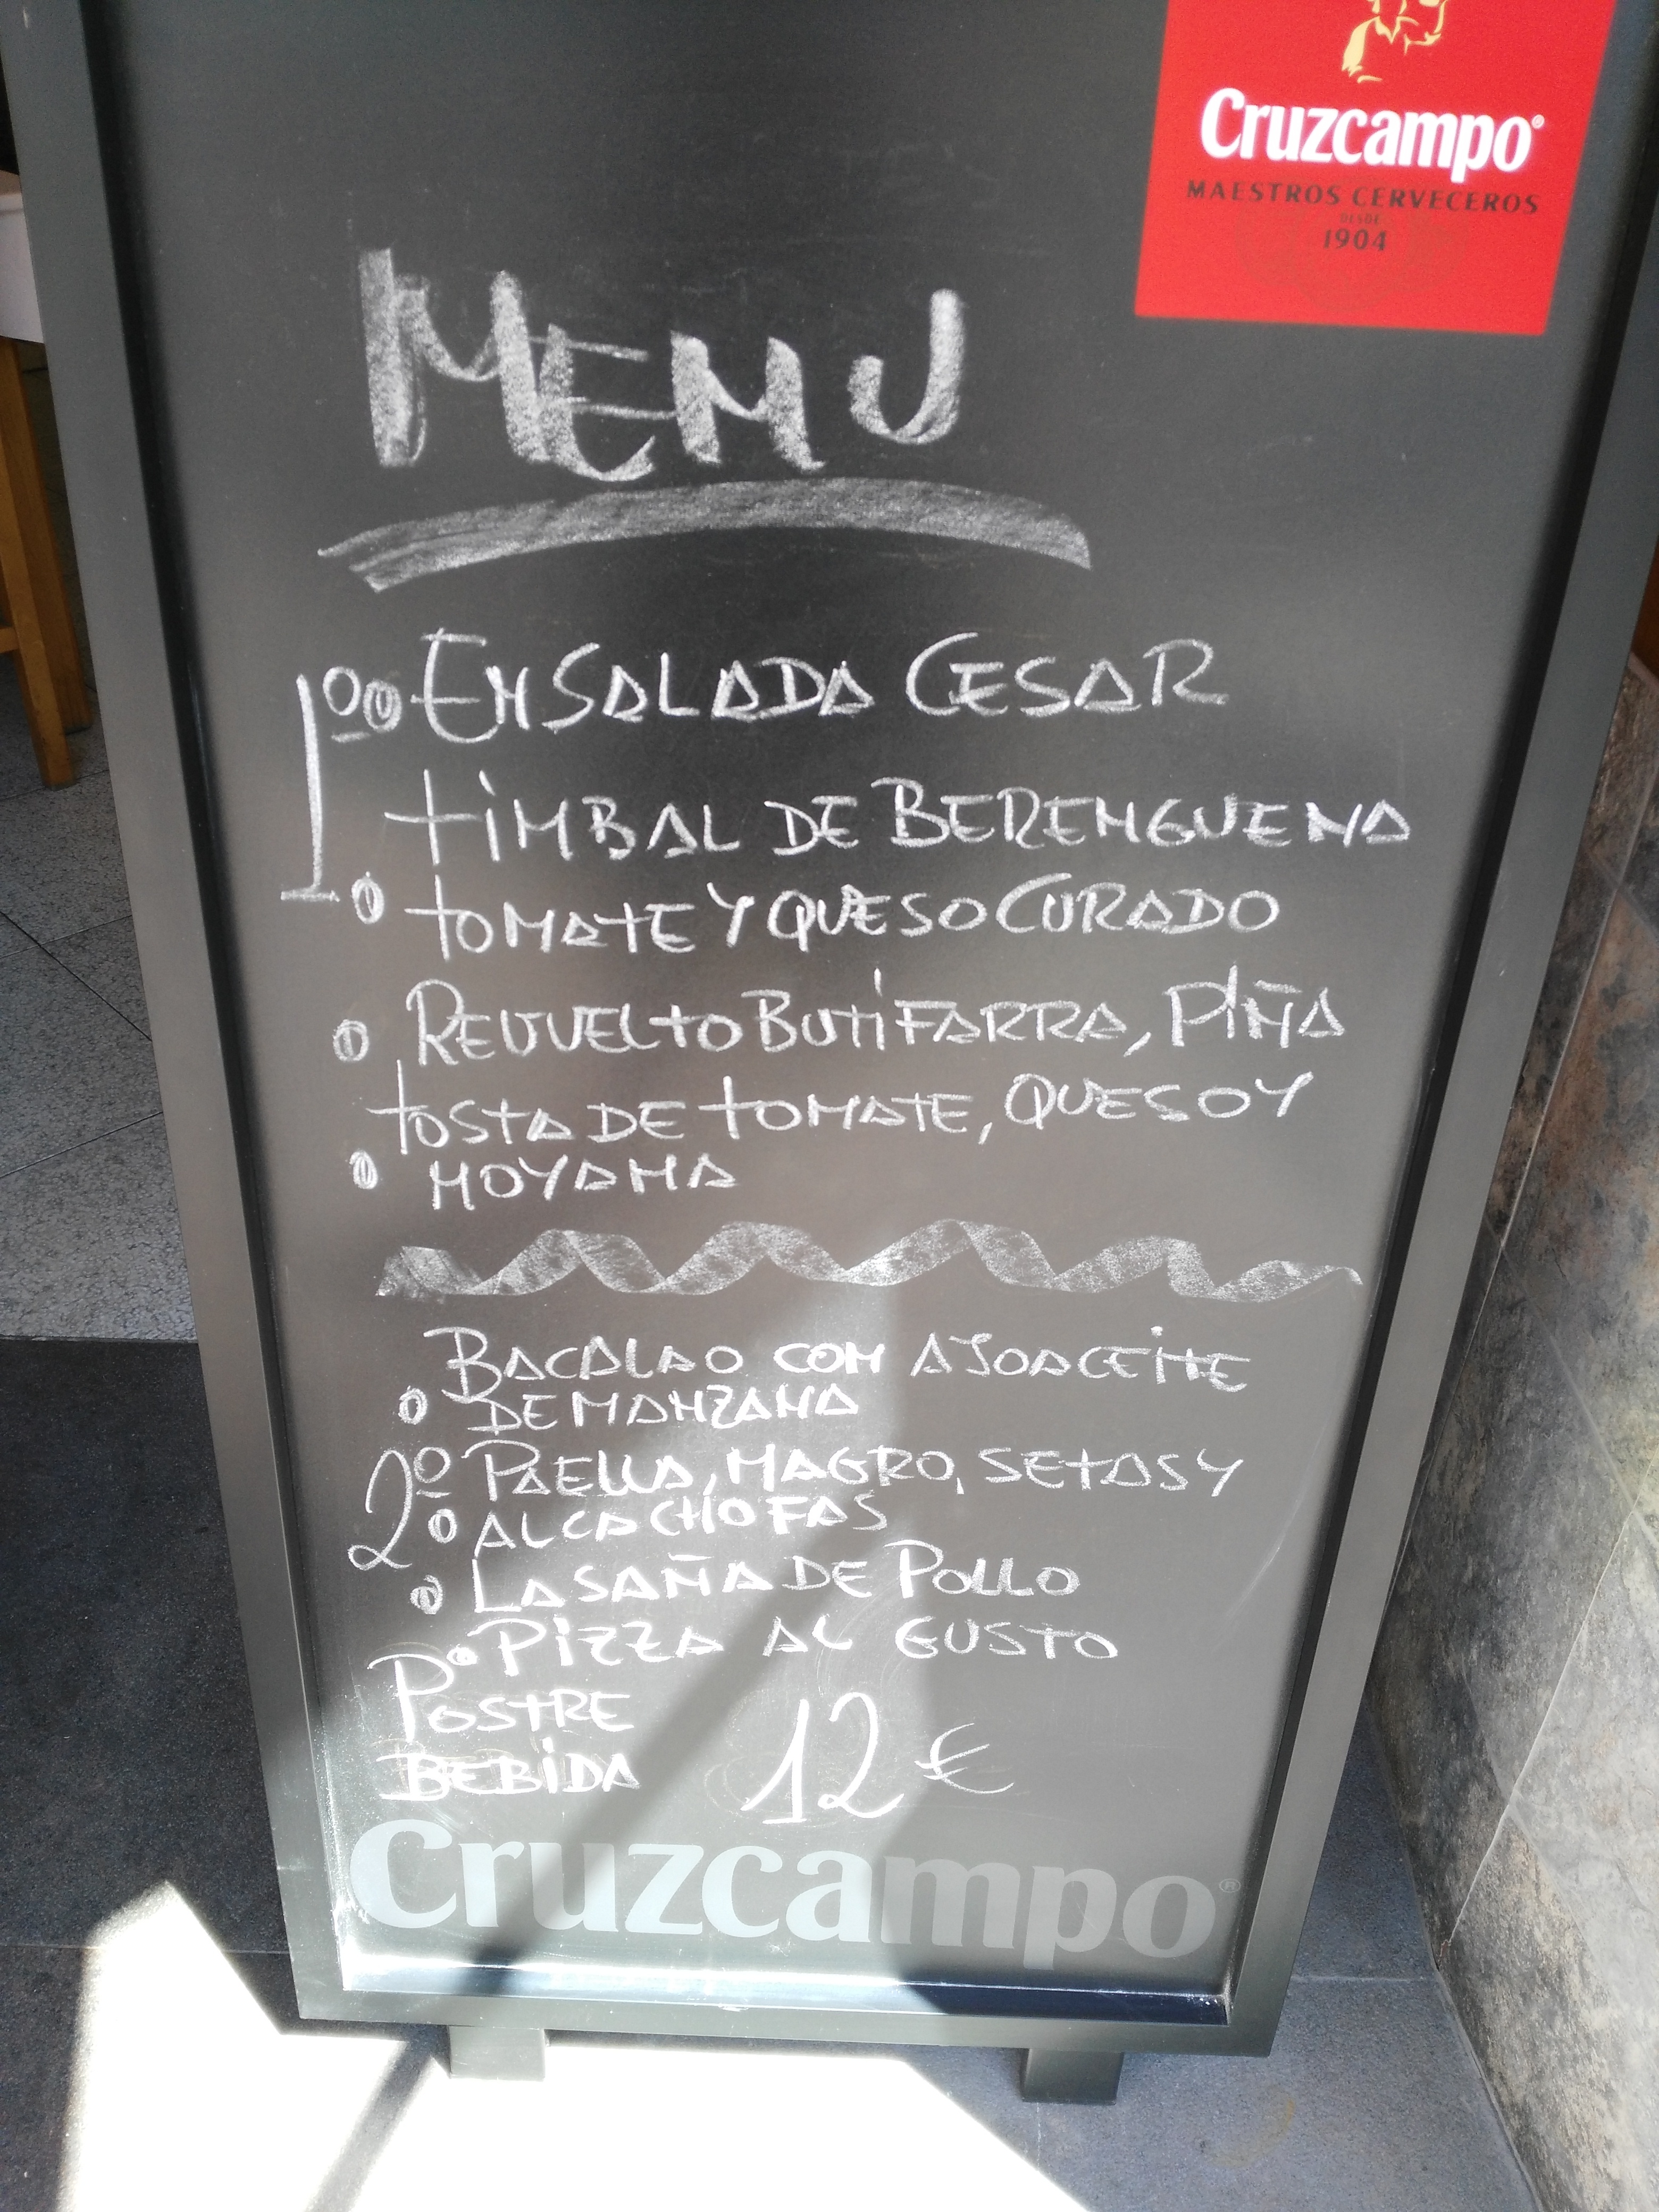 Cruzcampo®
MAESTROS CERVECEROS
DESDE
1904
MENU
1º ENSALADA CESAR
TIMBAL DE BERENGUENA
TOMATE Y QUESO CURADO
REVUELTO BUTIFARRA, PIÑA
TOSTA DE TOMATE, QUESO Y
MOYAMA
BACALAO CON AJOACEITE
DE MANZANA
2º PAELLA, MAGRO, SETAS Y
ALCACHOFAS
LASAÑA DE POLLO
PIZZA AL GUSTO
POSTRE
BEBIDA 12 €
Cruzcampo®